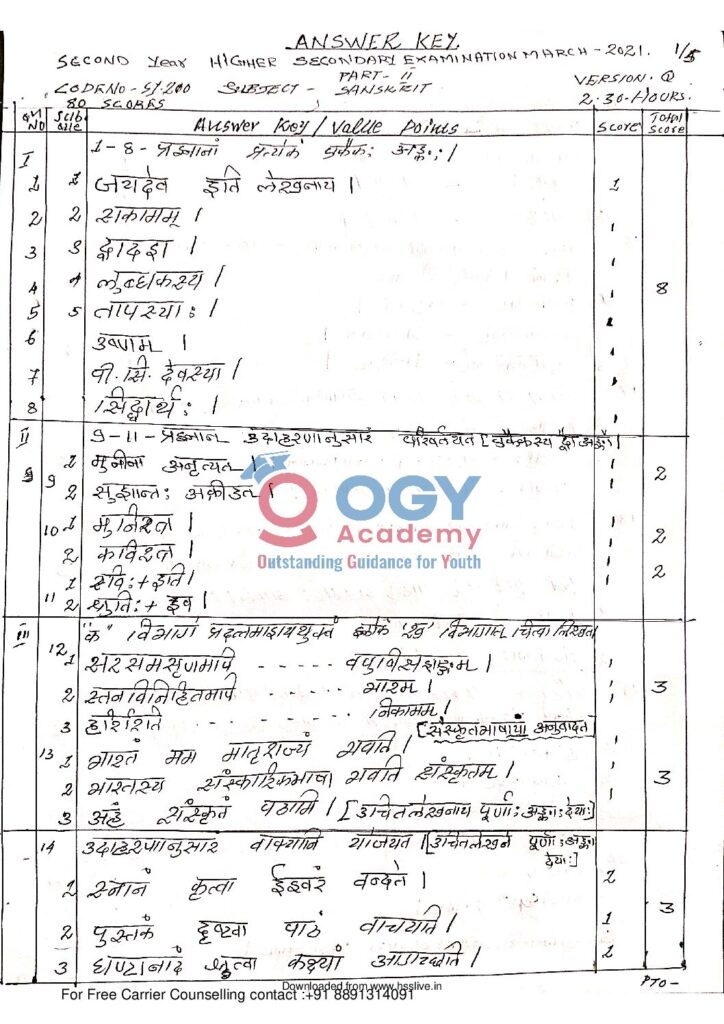 ANSWER KEY
SECOND Year HIGHER SECONDARY EXAMINATION MARCH-2021. 1/5
PART-II
CODENO-SY-200 SUBJECT- SANSKRIT VERSION. Q
80 SCORES 2.30-HOURS.
QN NO Sub Answer Key/Value Points Score Total Score
I 1-8- प्रश्नानां प्रत्येकं एकैकः अङ्कः।
1 1 जयदेव इति लेखनाय। 1
2 2 सकामम्। 1
3 3 द्वादश। 1
4 4 लुब्धकस्य। 1 8
5 5 तापस्याः। 1
6 उष्णम्। 1
7 वी.सि. देवस्या। 1
8 सिद्धार्थः। 1
II 9-11- प्रश्नान् उदाहरणानुसारं परिवर्तयत [एकैकस्य द्वौ अङ्कौ]
9 1 अनृत्यत्। 2
2 सुशान्तः अक्रीडत्।
10 1 मुनिश्च। 2
2 कविश्च। 2
11 1 रविः+इति।
2 श्रुतिः+इव।
OGY
Academy
Outstanding Guidance for Youth
III 12 "क" विभागं श्लोकं 'ख' विभागात् चित्वा लिखत
1 सरसमसृणमपि - - - - - वपुषि सशङ्कम्। 3
2 स्तनविनिहितमपि - - - - भारम्।
3 हरिरिति - - - निकामम्।
[संस्कृतभाषायां अनुवादत]
13 1 भारतं मम मातृराज्यं भवति।
2 भारतस्य सांस्कारिकभाषा भवति संस्कृतम्। 3
3 अहं संस्कृतं पठामि। [उचितलेखनाय पूर्णाः अङ्काः देयाः]
14 उदाहरणानुसारं वाक्यानि योजयत। [उचितलेखने पूर्णाः अङ्का देयाः]
स्नानं कृत्वा ईश्वरं वन्दते। 1
2 पुस्तकं दृष्ट्वा पाठं वाचयति। 1 3
3 घण्टानादं श्रुत्वा कक्ष्यां आगच्छति। 1
PTO-
Downloaded from www.hsslive.in
For Free Carrier Counselling contact :+91 8891314091